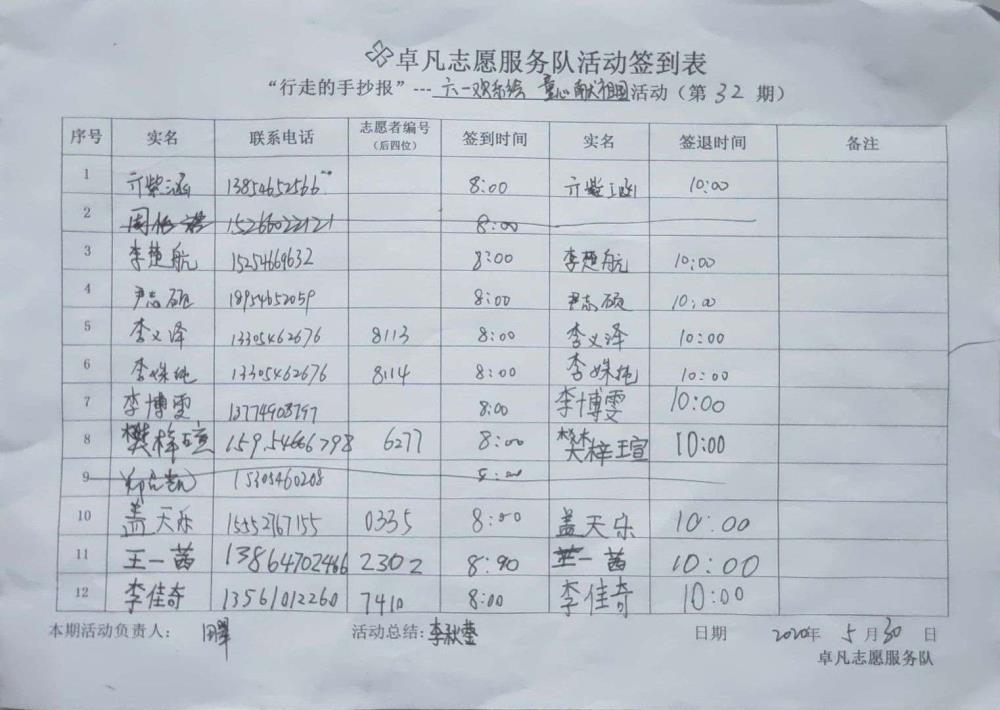 卓凡志愿服务队活动签到表
“行走的手抄报”---六一欢乐绘 童心献祖国活动（第 32 期）
序号 实名 联系电话 志愿者编号（后四位） 签到时间 实名 签退时间 备注
1 亓紫涵 13854652566 8:00 亓紫涵 10:00
2 周 15266022121 8:00
3 李楚航 15254669632 8:00 李楚航 10:00
4 尹志硕 18954652059 8:00 尹志硕 10:00
5 李义泽 13305462676 8113 8:00 李义泽 10:00
6 李姝纯 13305462676 8114 8:00 李姝纯 10:00
7 李博雯 13774908797 8:00 李博雯 10:00
8 樊梓瑄 15954666798 6277 8:00 樊梓瑄 10:00
9 15305460208 8:00
10 盖天乐 15552767155 0335 8:00 盖天乐 10:00
11 王一茜 13864702466 2302 8:00 王一茜 10:00
12 李佳奇 13561012260 7410 8:00 李佳奇 10:00
本期活动负责人： 活动总结: 李秋莹 日期 2020年 5 月 30 日
卓凡志愿服务队